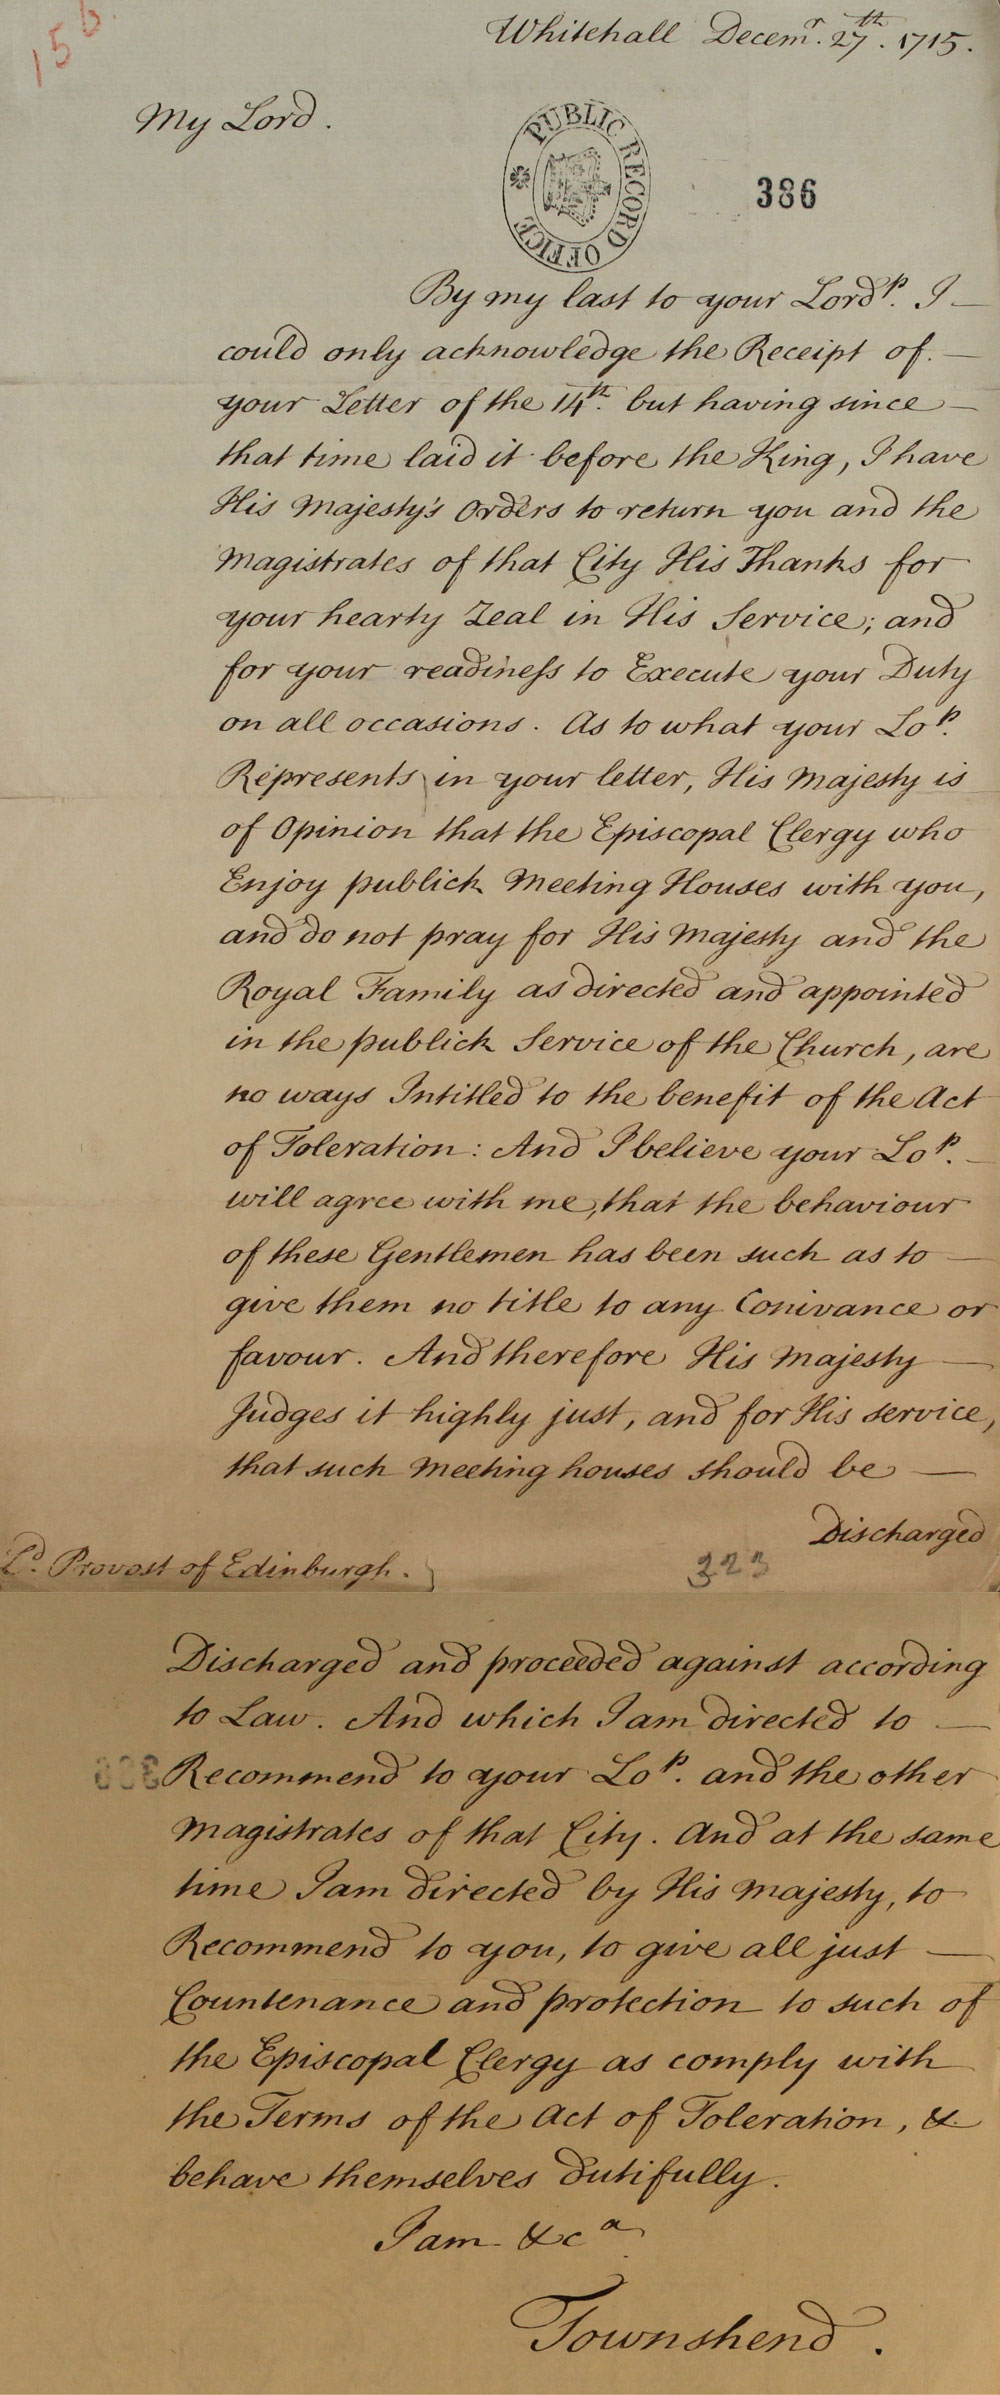 156.
Whitehall Decemr. 27th. 1715.
My Lord.
PUBLIC RECORD OFFICE
386
By my last to your Lordp. I
could only acknowledge the Receipt of.
your Letter of the 14th. but having since
that time laid it before the King, I have
His Majesty's Orders to return you and the
Magistrates of that City His Thanks for
your hearty Zeal in His Service; and
for your readiness to Execute your Duty
on all occasions. As to what your Lop.
Represents in your letter, His Majesty is
of Opinion that the Episcopal Clergy who
Enjoy publick Meeting Houses with you,
and do not pray for His Majesty and the
Royal Family as directed and appointed
in the publick Service of the Church, are
no ways Intitled to the benefit of the Act
of Toleration: And I believe your Lop.
will agree with me, that the behaviour
of these Gentlemen has been such as to
give them no title to any Conivance or
favour. And therefore His Majesty
Judges it highly just, and for His service,
that such Meeting houses should be
Discharged
Ld. Provost of Edinburgh.
323
Discharged and proceeded against according
to Law. And which I am directed to
Recommend to your Lop. and the other
Magistrates of that City. And at the same
time I am directed by His Majesty, to
Recommend to you, to give all just
Countenance and protection to such of
the Episcopal Clergy as comply with
the Terms of the Act of Toleration, &
behave themselves dutifully.
I am &ca
Townshend.